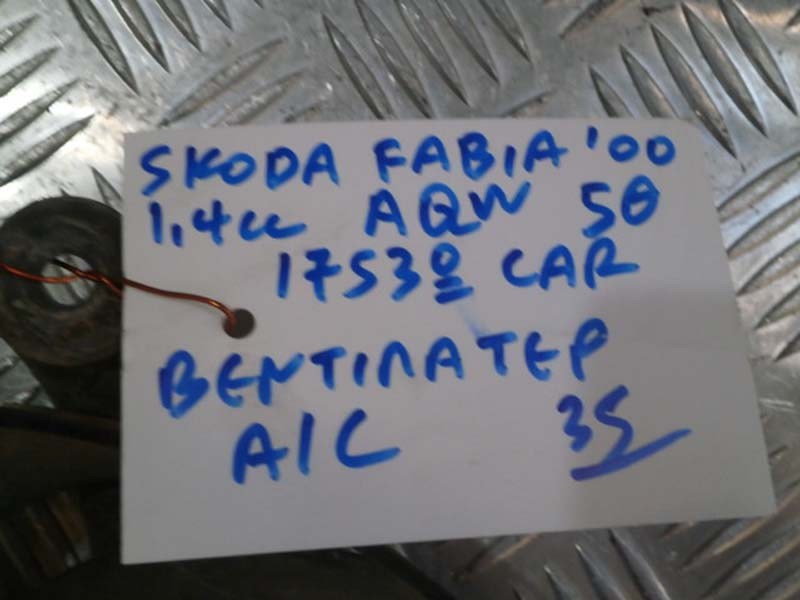 SKODA FABIA '00
1,4cc AQW 5Θ
1753º CAR
ΒΕΝΤΙΛΑΤΕΡ
A/C 35